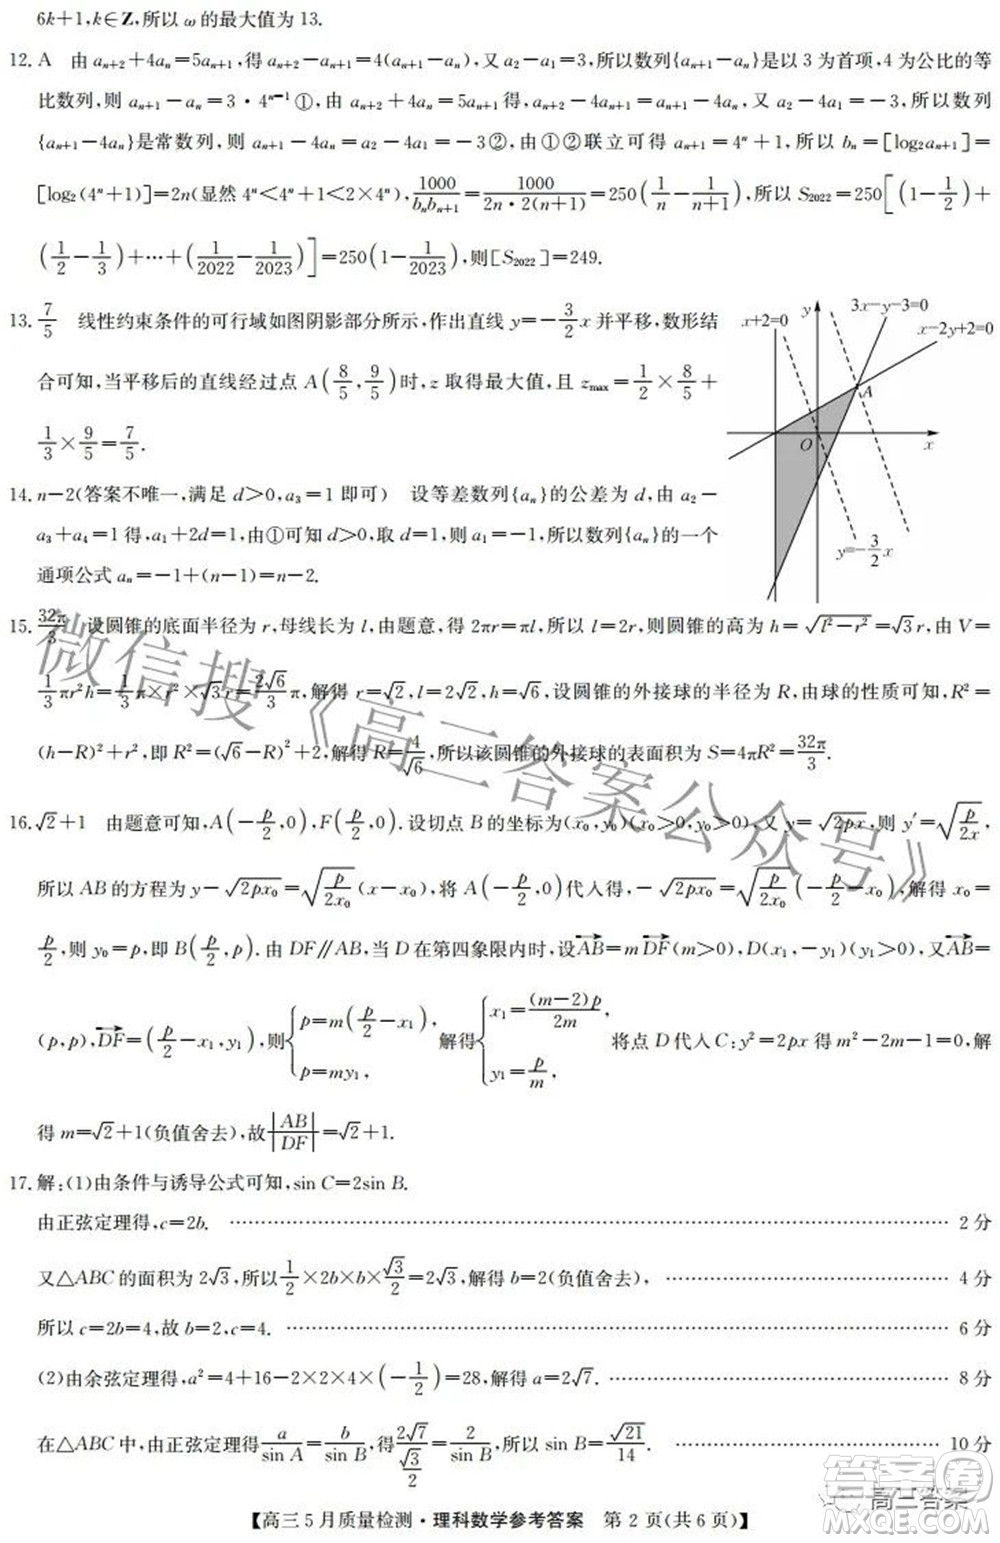 6k+1,k∈Z,所以 ω 的最大值为 13.
12. A 由 aₙ₊₂+4aₙ=5aₙ₊₁,得 aₙ₊₂-aₙ₊₁=4(aₙ₊₁-aₙ),又 a₂-a₁=3,所以数列{aₙ₊₁-aₙ}是以 3 为首项,4 为公比的等
比数列,则 aₙ₊₁-aₙ=3·4ⁿ⁻¹①,由 aₙ₊₂+4aₙ=5aₙ₊₁得,aₙ₊₂-4aₙ₊₁=aₙ₊₁-4aₙ,又 a₂-4a₁=-3,所以数列
{aₙ₊₁-4aₙ}是常数列,则 aₙ₊₁-4aₙ=a₂-4a₁=-3②,由①②联立可得 aₙ₊₁=4ⁿ+1,所以 bₙ=[log₂aₙ₊₁]=
[log₂(4ⁿ+1)]=2n(显然 4ⁿ<4ⁿ+1<2×4ⁿ),1000/(bₙbₙ₊₁)=1000/(2n·2(n+1))=250(1/n-1/(n+1)),所以 S₂₀₂₂=250[(1-1/2)+
(1/2-1/3)+…+(1/2022-1/2023)]=250(1-1/2023),则[S₂₀₂₂]=249.
13. 7/5 线性约束条件的可行域如图阴影部分所示,作出直线 y=-3/2x 并平移,数形结
合可知,当平移后的直线经过点 A(8/5,9/5)时,z 取得最大值,且 zmax=1/2×8/5+
1/3×9/5=7/5.
3x-y-3=0
x+2=0
y
x-2y+2=0
A
O
x
y=-3/2x
14. n-2(答案不唯一,满足 d>0,a₃=1 即可) 设等差数列{aₙ}的公差为 d,由 a₂-
a₃+a₄=1 得,a₁+2d=1,由①可知 d>0,取 d=1,则 a₁=-1,所以数列{aₙ}的一个
通项公式 aₙ=-1+(n-1)=n-2.
15. 32π/3 设圆锥的底面半径为 r,母线长为 l,由题意,得 2πr=πl,所以 l=2r,则圆锥的高为 h=√(l²-r²)=√3r,由 V=
1/3πr²h=1/3π×r²×√3r=2√6/3π,解得 r=√2,l=2√2,h=√6,设圆锥的外接球的半径为 R,由球的性质可知,R²=
(h-R)²+r²,即 R²=(√6-R)²+2,解得 R=4/√6,所以该圆锥的外接球的表面积为 S=4πR²=32π/3.
16. √2+1 由题意可知,A(-p/2,0),F(p/2,0).设切点 B 的坐标为(x₀,y₀)(x₀>0,y₀>0),又 y=√(2px),则 y′=√(p/2x),
所以 AB 的方程为 y-√(2px₀)=√(p/2x₀)(x-x₀),将 A(-p/2,0)代入得,-√(2px₀)=√(p/2x₀)(-p/2-x₀),解得 x₀=
p/2,则 y₀=p,即 B(p/2,p).由 DF∥AB,当 D 在第四象限内时,设AB=mDF(m>0),D(x₁,-y₁)(y₁>0),又AB=
(p,p),DF=(p/2-x₁,y₁),则{p=m(p/2-x₁),p=my₁,解得{x₁=(m-2)p/2m,y₁=p/m,将点 D 代入 C:y²=2px 得 m²-2m-1=0,解
得 m=√2+1(负值舍去),故|AB|/|DF|=√2+1.
17. 解:(1)由条件与诱导公式可知,sin C=2sin B.
由正弦定理得,c=2b. …… 2 分
又△ABC 的面积为 2√3,所以1/2×2b×b×√3/2=2√3,解得 b=2(负值舍去), …… 4 分
所以 c=2b=4,故 b=2,c=4. …… 6 分
(2)由余弦定理得,a²=4+16-2×2×4×(-1/2)=28,解得 a=2√7. …… 8 分
在△ABC 中,由正弦定理得a/sin A=b/sin B,得2√7/(√3/2)=2/sin B,所以 sin B=√21/14. …… 10 分
【高三 5 月质量检测·理科数学参考答案 第 2 页(共 6 页)】
微信搜《高三答案公众号》
高三答案
答案圈
MXQE.COM